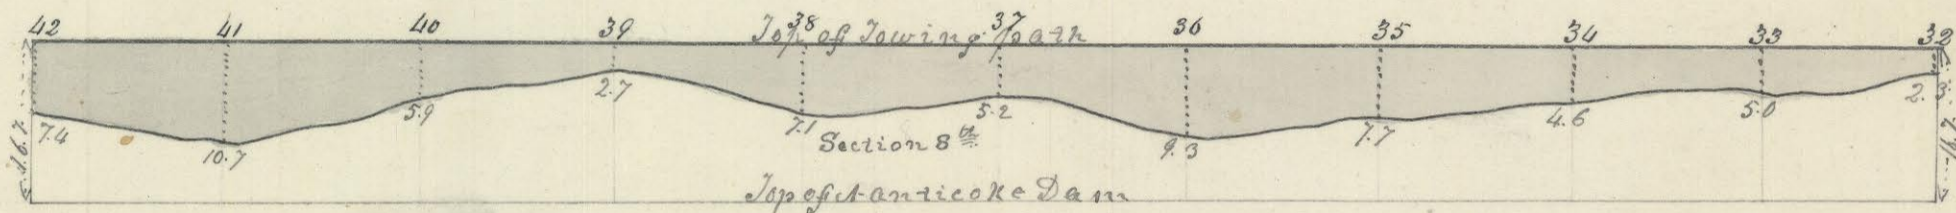 42 41 40 39 38 37 36 35 34 33 32
Top of Towing path
7.4 10.7 5.9 2.7 7.1 5.2 9.3 7.7 4.6 5.0 2.3
Section 8th
16.7
Top of Nanticoke Dam